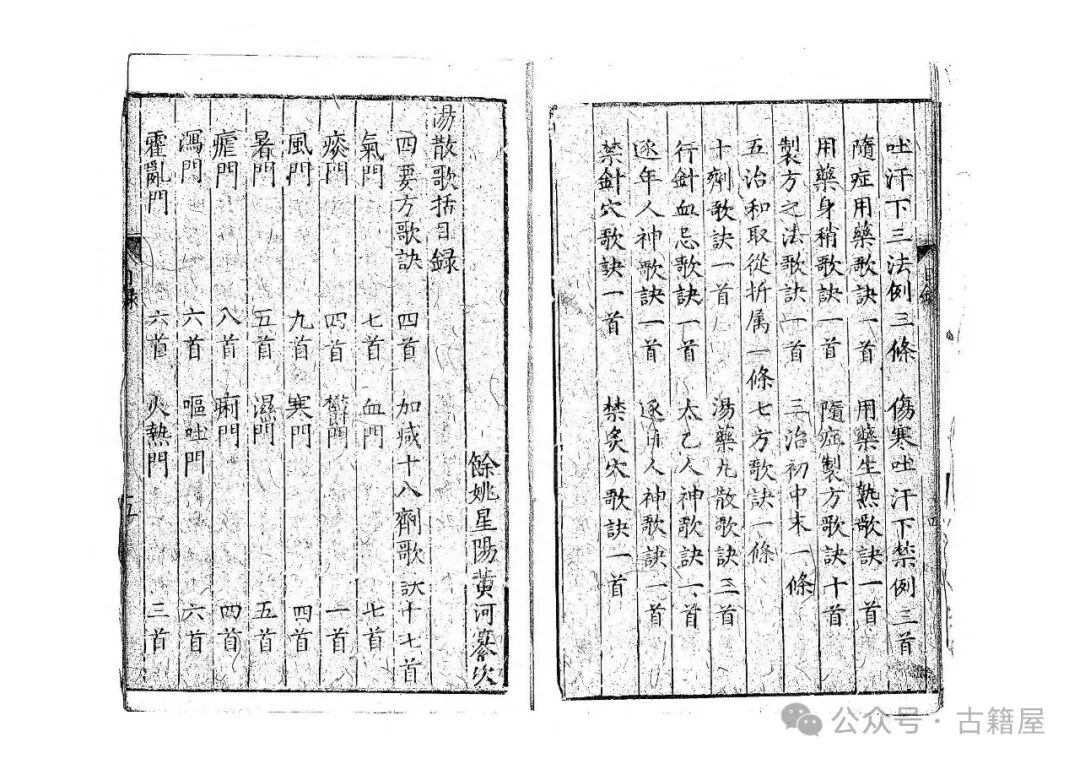 吐汗下三法例三條 傷寒吐汗下禁例三首
隨症用藥歌訣一首 用藥生熟歌訣一首
用藥身稍歌訣一首 隨症製方歌訣十首
製方之法歌訣一首 三治初中末一條
五治和取從折属一條 七方歌訣一條
十劑歌訣一首 湯藥丸散歌訣三首
行針血忌歌訣一首 太乙人神歌訣一首
逐年人神歌訣一首 逐日人神歌訣一首
禁針穴歌訣一首 禁灸穴歌訣一首
目錄
四
餘姚星陽黄河纂次
湯散歌括目錄
四要方歌訣 四首 加減十八劑歌訣十七首
氣門 七首 血門 七首
痰門 四首 鬱門 一首
風門 九首 寒門 四首
暑門 五首 濕門 五首
瘧門 八首 痢門 四首
瀉門 六首 嘔吐門 六首
霍亂門 六首 火熱門 三首
目錄
五
公众号·古籍屋